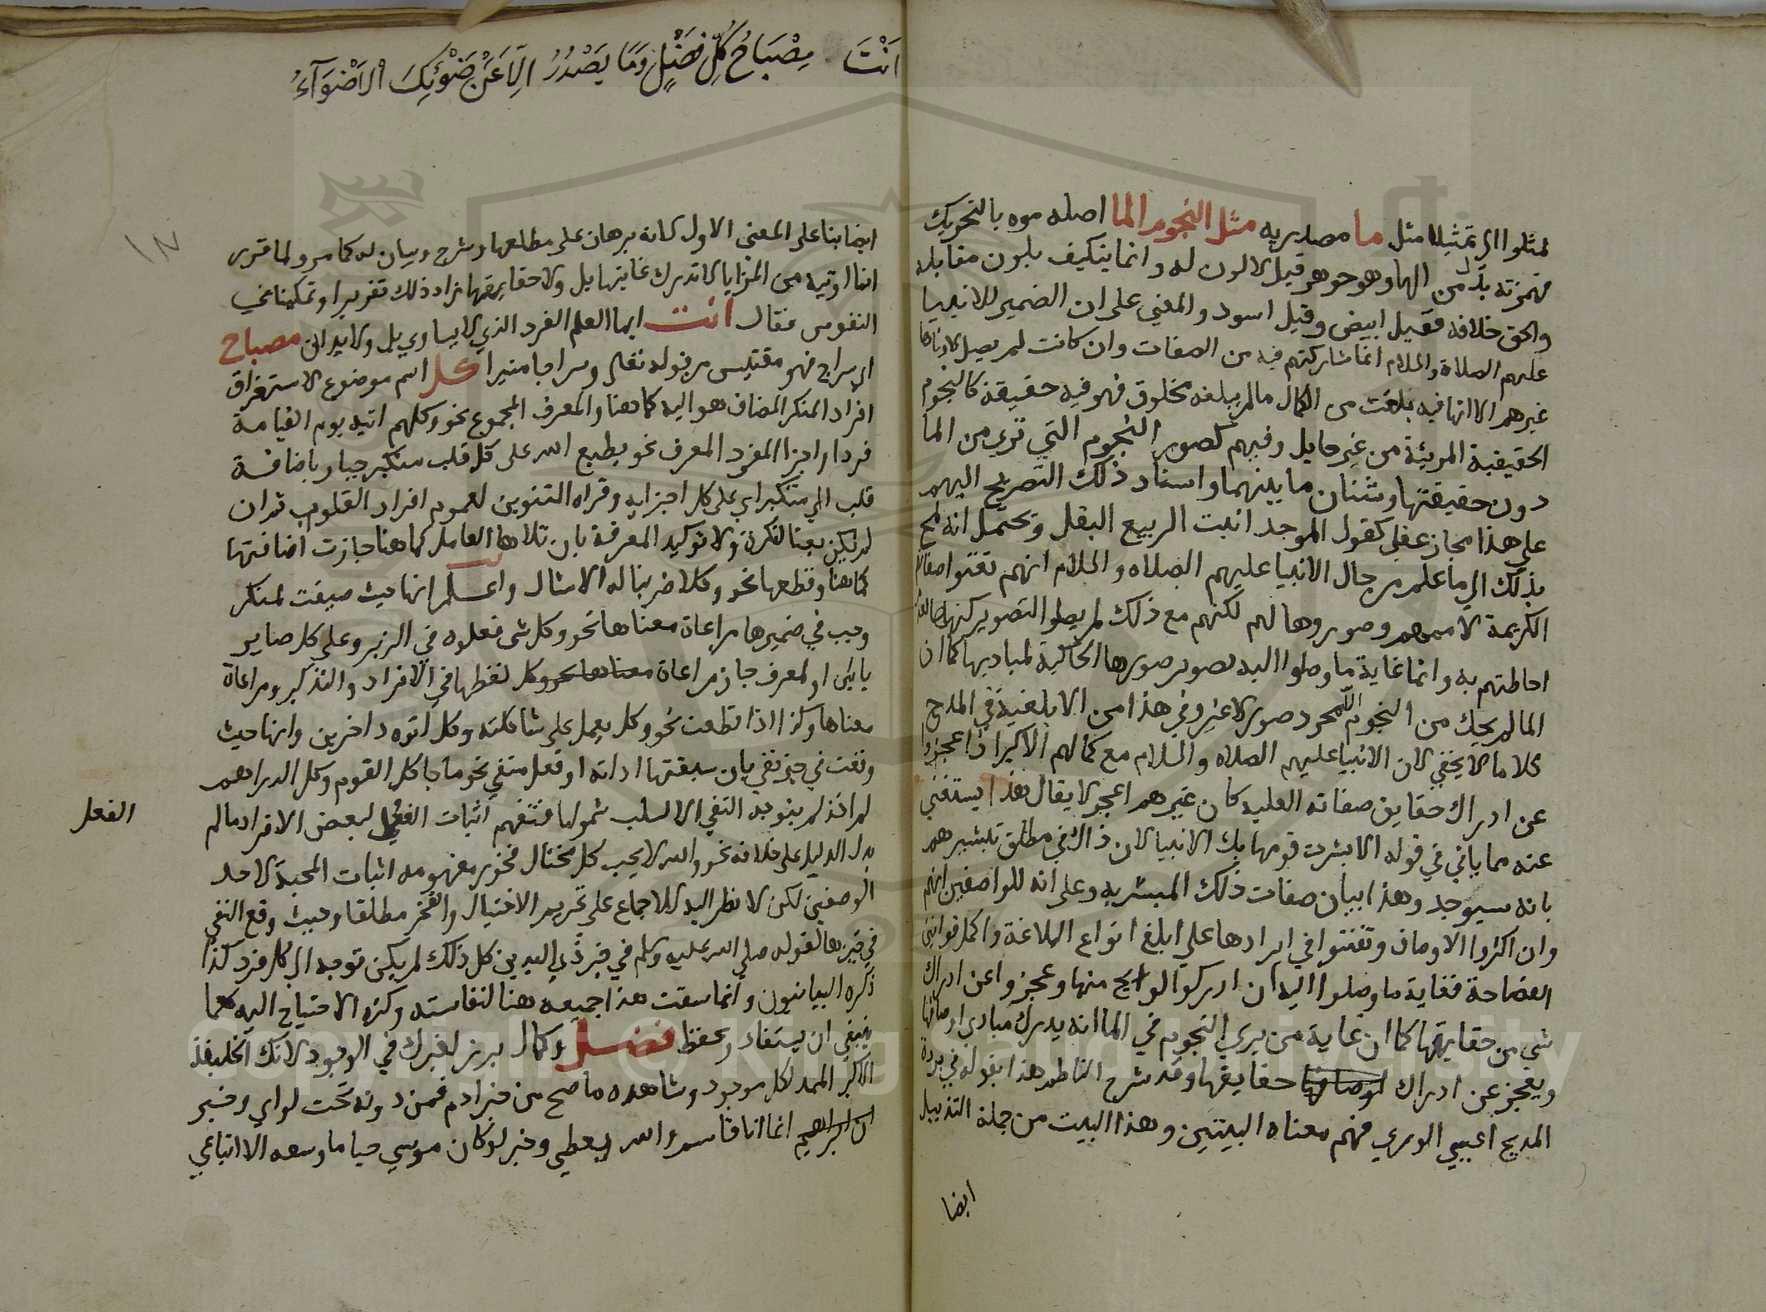 لمثلوا الى تمثيلا مثل ما مصدريه مثل النجوم الما اصله موه بالتحريك
فهمزته بدل من الها وهو جوهر قيل لا لون له وانما يتكيف بلون مقابله
والحق خلافه فقيل ابيض وقيل اسود والمعنى على ان الضمير للانبيا
عليهم الصلاة والسلام انما شاركتهم فيه من الصفات وان كانت لم يصل
غيرهم الا انها فيه بلغت من الكمال ما لم يبلغه مخلوق فهو فيه حقيقة كالنجوم
الحقيقية المريئة من غير حايل وفيهم كصور النجوم التي ترى من الما
دون حقيقتها وشتان ما بينهما واسناد ذلك التصريح اليهم
على هذا مجاز عقلي كقول الموحد انبت الربيع البقل ويحتمل انه لمح
بذلك الى ما علم من حال الانبيا عليهم الصلاه والسلام انهم نعتوا صفاته
الكريمة لاممهم وصوروها لهم لكنهم مع ذلك لم يصلوا لتصوير كنهها
احاطتهم به وانما غاية ما وصلوا اليه تصوير صورها الحاكية لمباديها كما ان
الما لم يحك من النجوم الا مجرد صور لا غير وفي هذا من الابلغية في المدح
كلاما لا يخفى لان الانبيا عليهم الصلاه والسلام مع كمالهم الاكبر اذا عجزوا
عن ادراك حقايق صفاته العليه كان غيرهم اعجز لا يقال هذا يستغنى
عنه مما ياتي في قوله الا بشرت قومها بك الانبيا لان ذاك في مطلق تبشيرهم
بانه سيوجد وهذا ابيان صفات ذلك المبشر به وعلى انه للواصفين انهم
وان اكثروا الاوصاف وتفننوا في ايرادها على ابلغ انواع البلاغة واكمل قوانين
الفصاحة فغاية ما وصلوا اليه ان ادركوا لوايح منها وعجزوا عن ادراك
شي من حقايقها كما ان غاية من يرى النجوم في الما انه يدرك مبادي اوصافها
ويعجز عن ادراك حقايقها وقد شرح الناظم هذا بقوله في بردة
المديح اعيى الورى فهم معناه البيتين وهذا البيت من جملة التذييل
ايضا
اَنْتَ مِصْبَاحُ كُلِّ فَضْلٍ وَمَا يَصْدُرُ اِلَّا عَنْ ضَوْئِكَ الْاَضْوَآءُ
ايضا بنا على المعنى الاول لانه برهان على مطلعها وشرح وبيان له كما مر ولما قرر
انما اوتيه من المزايا لا تدرك غايتها بل ولا حقايقها زاد ذلك تقريرا وتمكينا في
النفوس فقال انت ايها العلم الفرد الذي لا يساوى بل ولا يدانى مصباح
اي سراج فهو مقتبس من قوله تعالى وسراجا منيرا كل اسم موضوع لاستغراق
افراد المنكر المضاف هو اليه كما هنا والمعرف المجموع نحو وكلهم اتيه يوم القيامة
فردا واجزا المفرد المعرف نحو يطبع الله على كل قلب متكبر جبار باضافة
قلب الى متكبر اي على كل اجزايه وقراه التنوين لعموم افراد القلوب ثم ان
لم يكن نعتا لنكرة ولا توكيد المعرفة بان تلاها العامل كما هنا جازت اضافتها
كما هنا وقطعها نحو وكلا ضربنا له الامثال واعلم انها حيث صيفت لمنكر
وجب في ضميرها مراعاة معناها نحو وكل شي فعلوه في الزبر وعلى كل ضامر
ياتين او لمعرف جاز مراعاة لفظها في الافراد والتذكير ومراعاة
معناها وكذا اذا قطعت نحو وكل يعمل على شاكلته وكل اتوه داخرين وانها حيث
وقعت في حيز نفي بان سبقتها اداته او فعل منفي نحو ما جا كل القوم وكل الدراهم
لم اخذ لم يتوجه النفي الا لسلب شمولها فتفهم اثبات الفعل لبعض الافراد ما لم
يدل الدليل على خلافه نحو والله لا يحب كل مختال فخور مفهومه اثبات المحبة لاحد
الوصفين لكن لا نظر اليه للاجماع على تحريم الاختيال والفخر مطلقا وحيث وقع النفي
في حيزها كقوله صلى الله عليه وسلم في خبر ذي اليدين كل ذلك لم يكن توجه الى كل فرد كذا
ذكره البيانيون وانما سقت هذا جميعه هنا لنفاسته وكثرة الاحتياج اليه كما
ينبغي ان يستفاد ويحفظ فضل وكمال برز لغيرك في الوجود لانك الخليفة
الاكبر الممد لكل موجود وشاهده ما صح من خبر ادم فمن دونه تحت لواي وخبر
انما انا قاسم والله يعطي وخبر لو كان موسى حيا ما وسعه الا اتباعي
الفعل